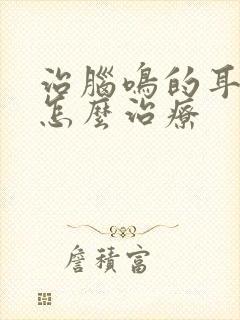 治腦鳴的耳
怎麼治療
詹積富